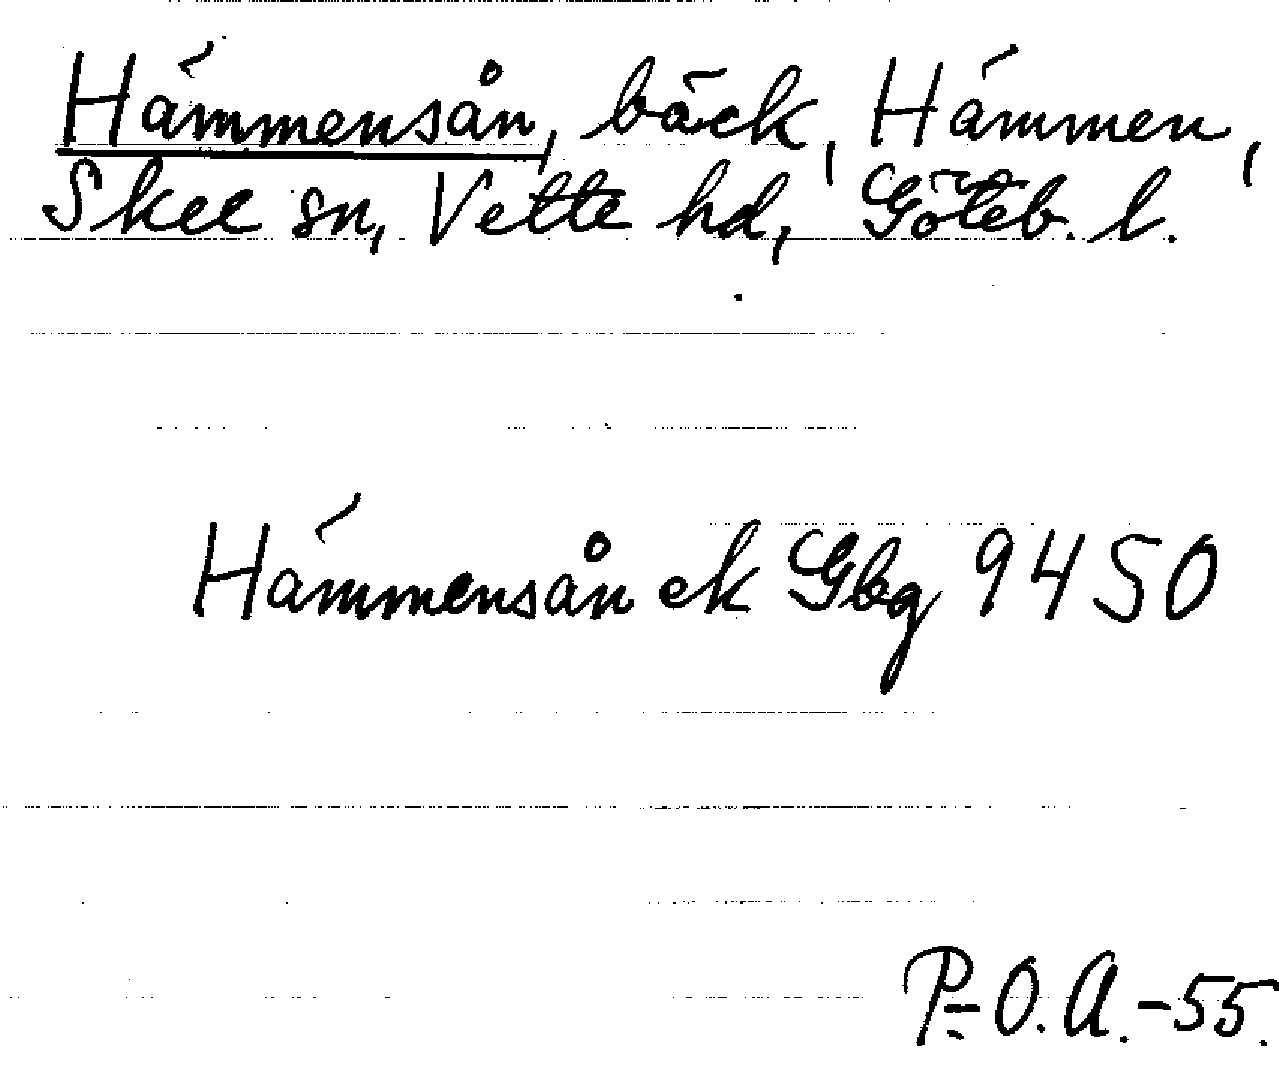 Hämmensån, bäck, Hämmen,
Skee sn, Vette hd, Göteb. l.
Hämmensån ek Gbg 9450
P-O.A.-55.